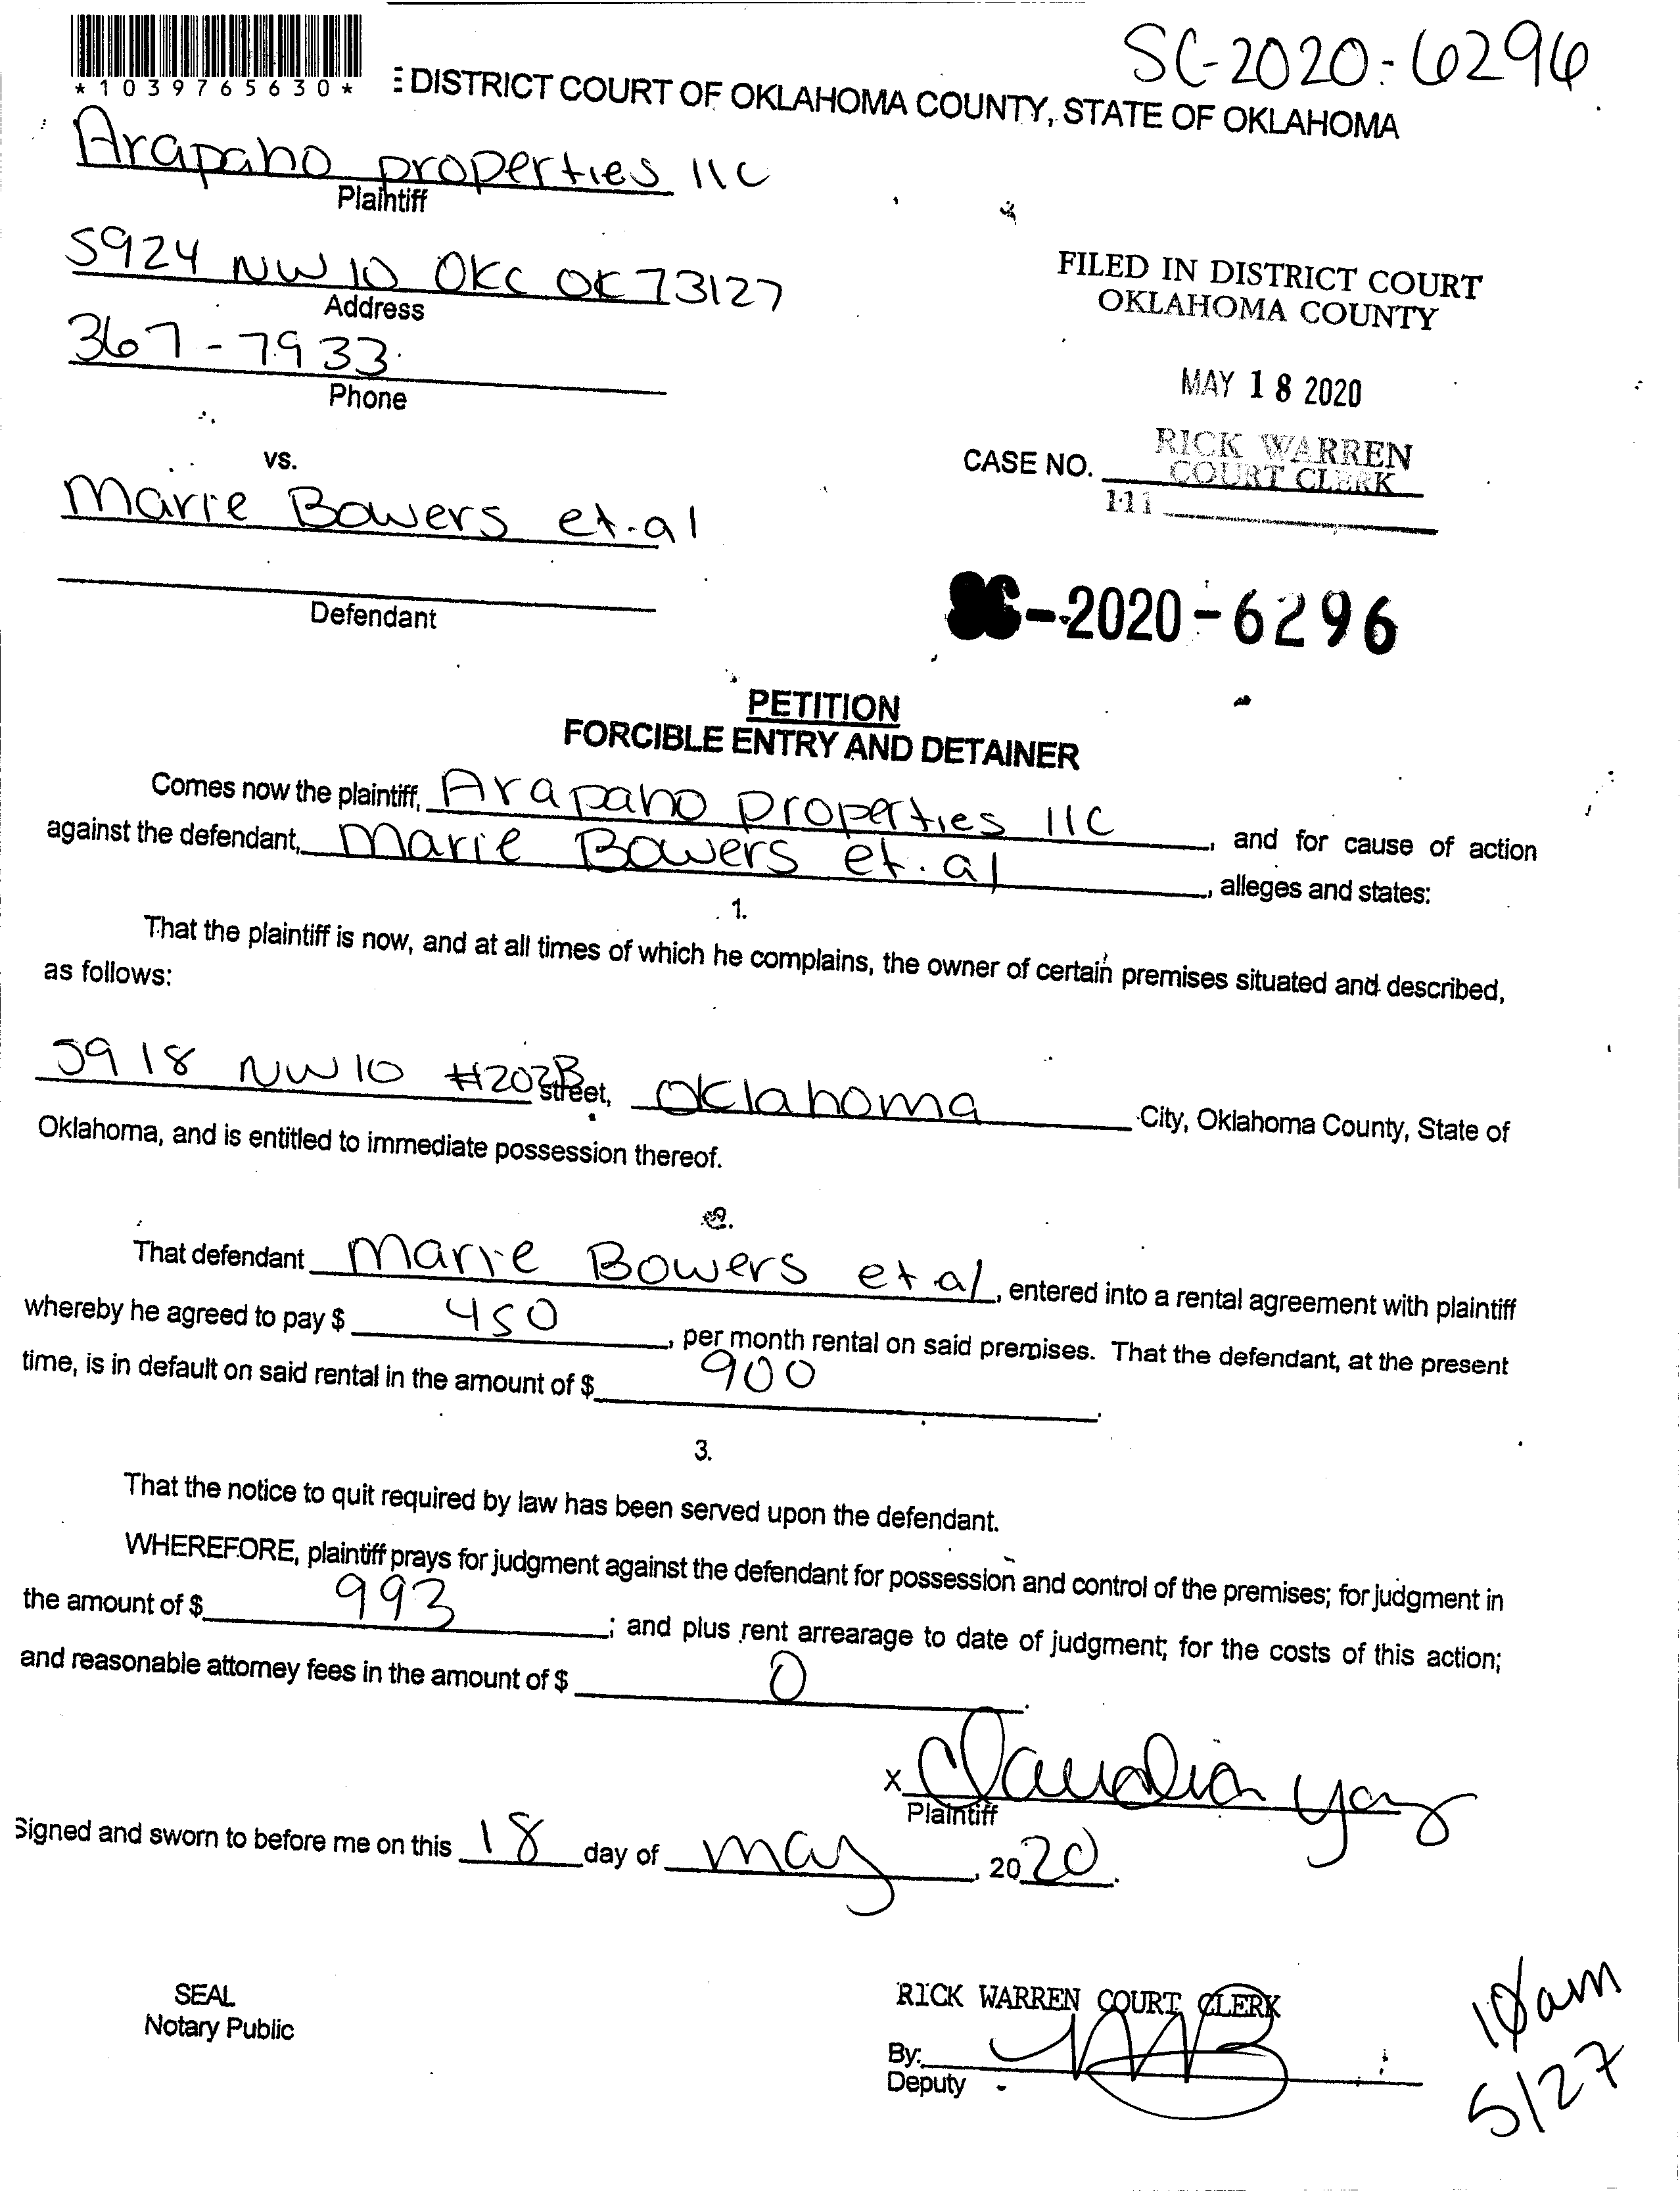 SC-2020-6296
*1039765630*
E DISTRICT COURT OF OKLAHOMA COUNTY, STATE OF OKLAHOMA
Arapaho properties llc
Plaintiff
5924 NW 10 OKC OK 73127
Address
367-7933
Phone
FILED IN DISTRICT COURT
OKLAHOMA COUNTY
MAY 18 2020
RICK WARREN
COURT CLERK
CASE NO.
111
vs.
Marie Bowers et.al
Defendant
SC-2020-6296
PETITION
FORCIBLE ENTRY AND DETAINER
Comes now the plaintiff, Arapaho properties llc, and for cause of action
against the defendant, Marie Bowers et.al, alleges and states:
1.
That the plaintiff is now, and at all times of which he complains, the owner of certain premises situated and described,
as follows:
5918 NW 10 #202B street, Oklahoma City, Oklahoma County, State of
Oklahoma, and is entitled to immediate possession thereof.
2.
That defendant Marie Bowers et al, entered into a rental agreement with plaintiff
whereby he agreed to pay $ 450, per month rental on said premises. That the defendant, at the present
time, is in default on said rental in the amount of $ 900.
3.
That the notice to quit required by law has been served upon the defendant.
WHEREFORE, plaintiff prays for judgment against the defendant for possession and control of the premises; for judgment in
the amount of $ 993; and plus rent arrearage to date of judgment; for the costs of this action;
and reasonable attorney fees in the amount of $ 0.
x Claudia
Plaintiff
Signed and sworn to before me on this 18 day of May, 2020.
SEAL
Notary Public
RICK WARREN COURT CLERK
By:
Deputy
10am
5/27